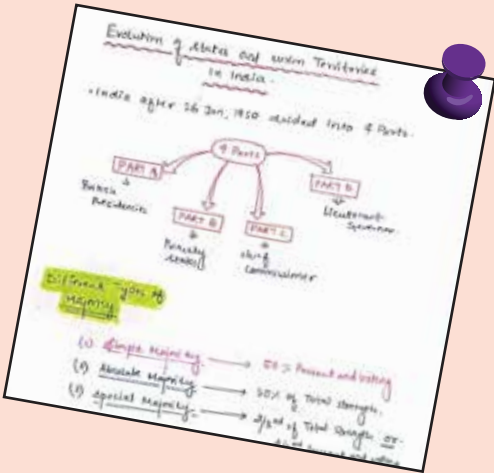 Evolution of States and Union Territories
in India.
• India after 26 Jan, 1950 divided into 4 Parts.
4 Parts
PART A
British
Presidencies
PART B
Princely
States
PART C
Chief
Commissioner
PART D
Lieutenant
Governor
Different Types of
Majority
(1) Simple Majority → 50% Present and voting
(2) Absolute Majority → 50% of Total Strength.
(3) Special Majority → 2/3rd of Total Strength or
present and voting